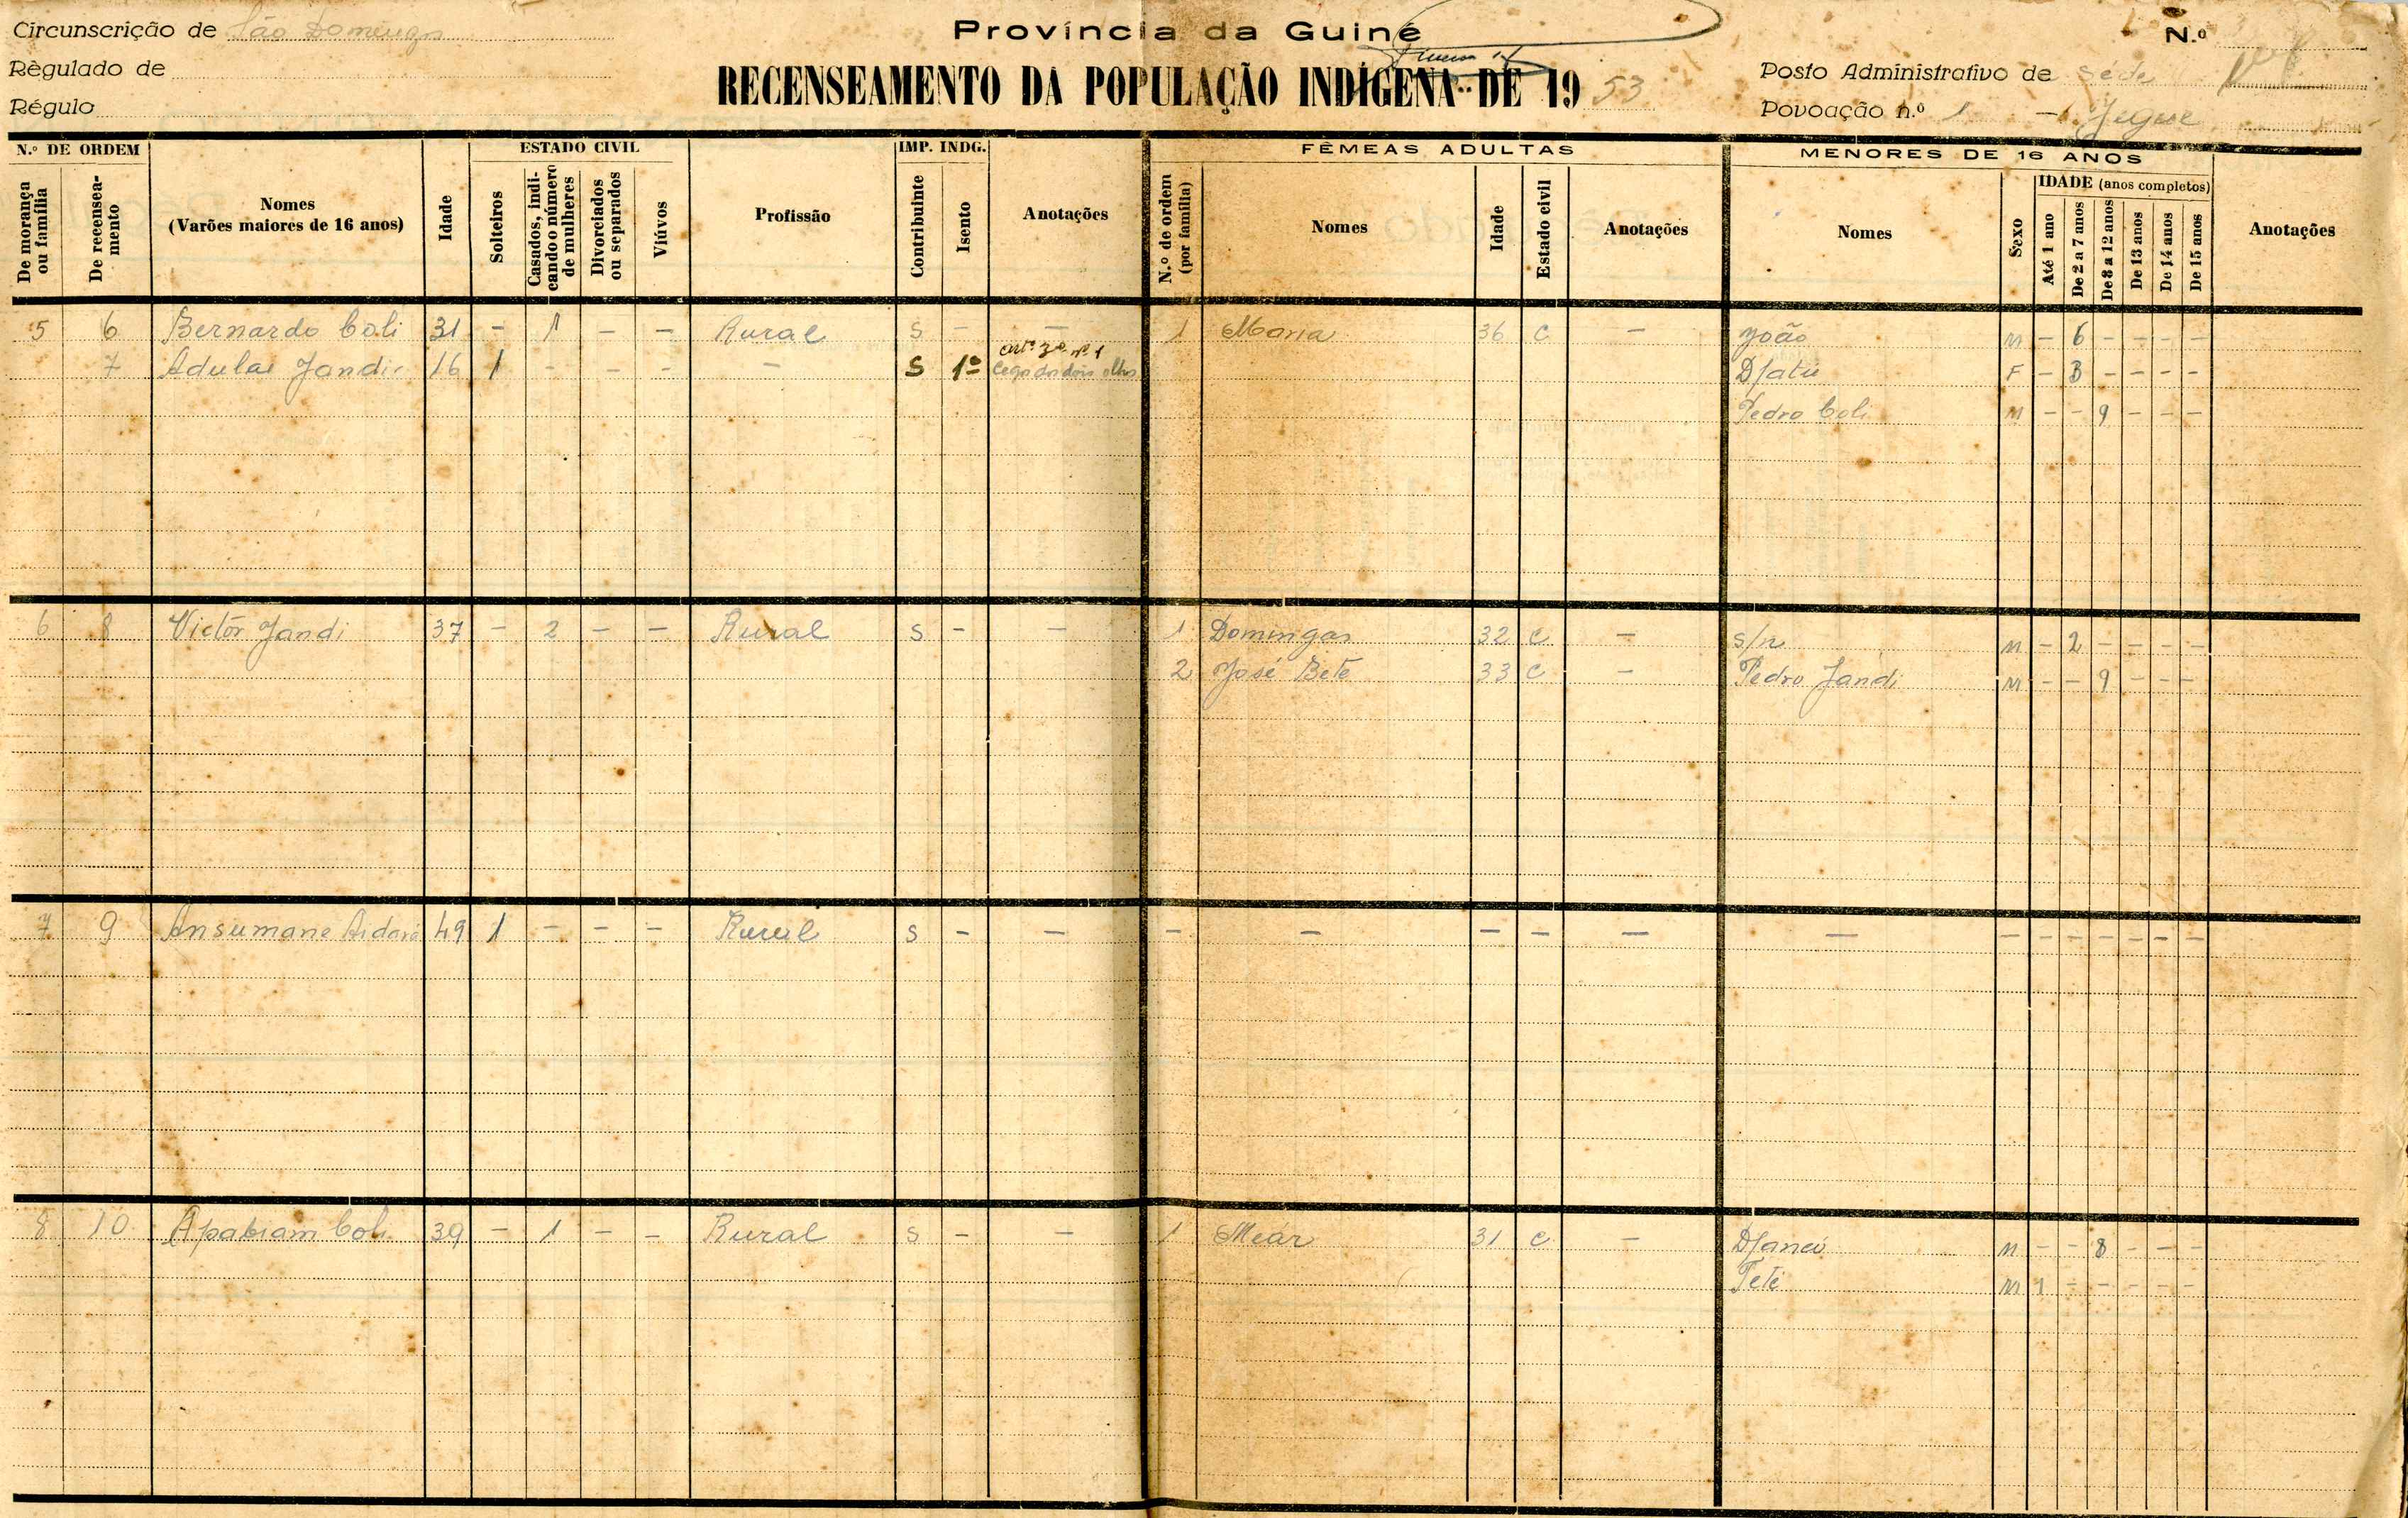 Circunscrição de São Domingos
Província da Guiné
N.º
Règulado de
RECENSEAMENTO DA POPULAÇÃO INDÍGENA DE 19 53
Posto Administrativo de Séde
Régulo
Povoação n.º 1 — Jegue
N.º DE ORDEM
De morança ou família
De recenseamento
Nomes
(Varões maiores de 16 anos)
Idade
ESTADO CIVIL
Solteiros
Casados, indicando o número de mulheres
Divorciados ou separados
Viúvos
Profissão
IMP. INDG.
Contribuinte
Isento
Anotações
FÊMEAS ADULTAS
N.º de ordem (por família)
Nomes
Idade
Estado civil
Anotações
MENORES DE 16 ANOS
Nomes
Sexo
IDADE (anos completos)
Até 1 ano
De 2 a 7 anos
De 8 a 12 anos
De 13 anos
De 14 anos
De 15 anos
Anotações
5 6 Bernardo Coli 31 - 1 - - Rural S - - 1 Maria 36 C - João M - 6 - - - -
artº 3º nº 1
7 Adulai Jandi 16 1 - - - - S 1º Cego dos dois olhos Djatu F - 3 - - - -
Pedro Coli M - - 9 - - -
6 8 Victór Jandi 37 - 2 - - Rural S - - 1 Domingas 32 C - s/n M - 2 - - - -
2 José Bete 33 C - Pedro Jandi M - - 9 - - -
7 9 Ansumane Aidará 49 1 - - - Rural S - - - - - - - - - - - - - - -
8 10 Apabiam Coli 39 - 1 - - Rural S - - 1 Meár 31 C - Djancó M - - 8 - - -
Teté M 1 - - - - -